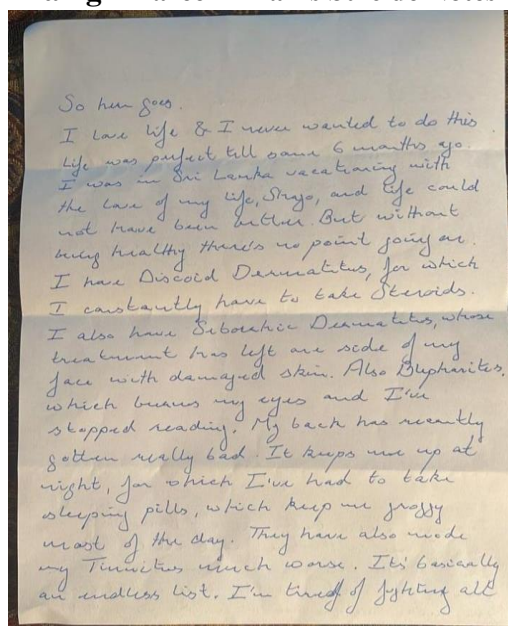 So here goes.
I love life & I never wanted to do this.
Life was perfect till some 6 months ago.
I was in Sri Lanka vacationing with
the love of my life, and life could
not have been better. But without
being healthy there's no point going on.
I have Discoid Dermatitus, for which
I constantly have to take Steroids.
I also have Seborrhic Dermatitus, whose
treatment has left one side of my
face with damaged skin. Also Blepharites,
which burns my eyes and I've
stopped reading. My back has recently
gotten really bad. It keeps me up at
night, for which I've had to take
sleeping pills, which keep me groggy
most of the day. They have also made
my Tinnitus much worse. It's basically
an endless list. I'm tired of fighting all